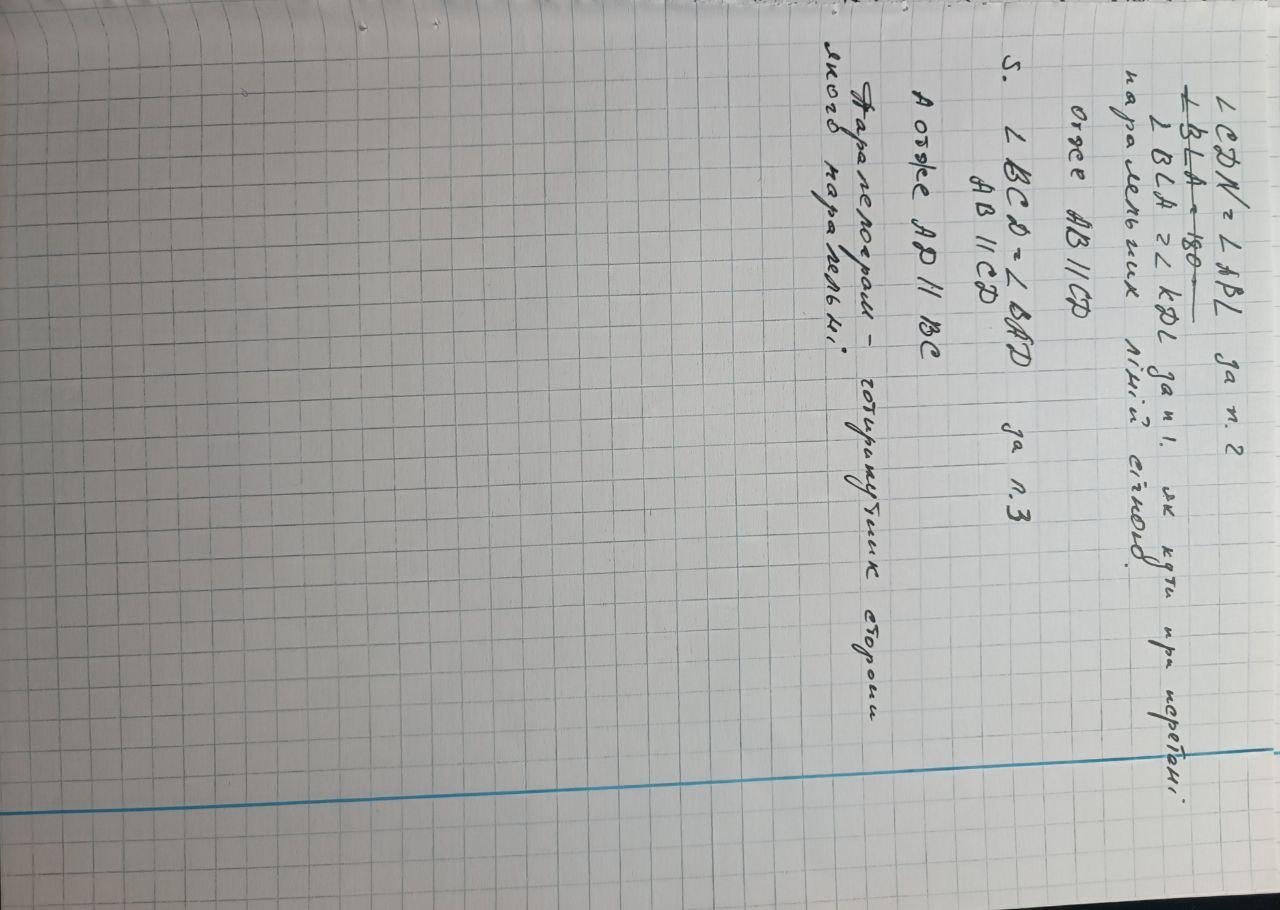 ∠CDN = ∠ABL за п. 2
∠BLA = 180
∠BLA = ∠KDL за п 1. як кути при перетені
паралельних ліній січною.
отже AB || CD
5. ∠BCD = ∠BAD за п.3
AB || CD
А отже AD || BC
Паралелограм - чотирикутник сторони
якого паралельні